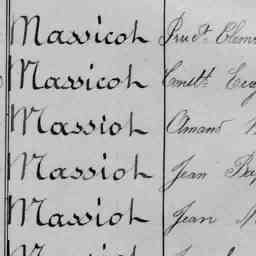 Massicot Prudt. Clem
Massicot Constt. Eug
Massiot Amand
Massiot Jean Bap
Massiot Jean